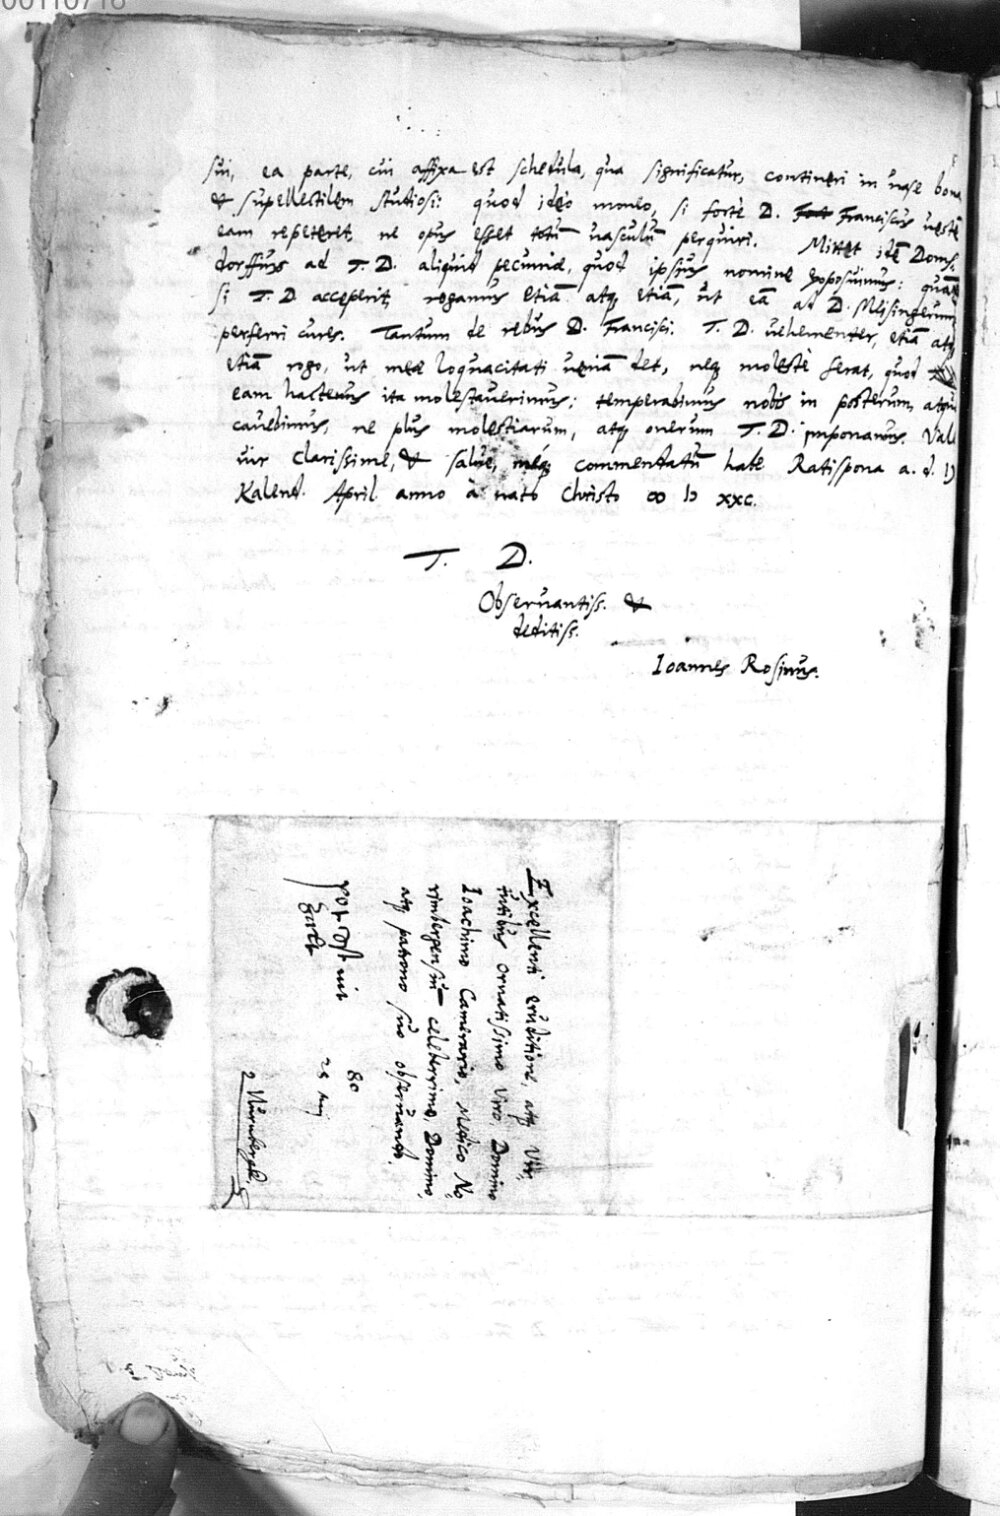 00110716
sui, ea parte, cui affixa est schedula, qua significatur, contineri in uase bona
& supellectilem studiosi: quod ideò moneo, si forte D. Franciscus uestē
eam repeteret, ne opus esset totū uasculū perquiri. Mittet idē Doms,
dorffius ad T. D. aliquid pecuniæ, quod ipsius nomine exposuimus: quam
si T. D. acceperit, rogamus etiā atq etiā, ut eā ad D. Meisingerum
perferri cures. Tantum de rebus D. Francisci. T. D. uehementer, etiā atq
etiā rogo, ut meæ loquacitati ueniā det, neq molestè ferat, quod
eam hactenus ita molestauerimus: temperabimus nobis in posterum, atque
cauebimus, ne plus molestiarum, atq onerum T. D. imponamus. Vale
uir clarissime, & salue, meq commendatū habe Ratispona a. d.
Kalend. April anno à nato Christo ∞ IↃ xxc.
T. D.
Obseruantiss. &
deditiss.
Ioannes Rosinus.
Excellenti eruditione, atq Vir,
tutibus ornatissimo Viro, Domino
Ioachimo Camerario, Medico No,
rimbergensiū celeberrimo, Domino,
atq patrono suo obseruando.
80
2 Nurmbergk.